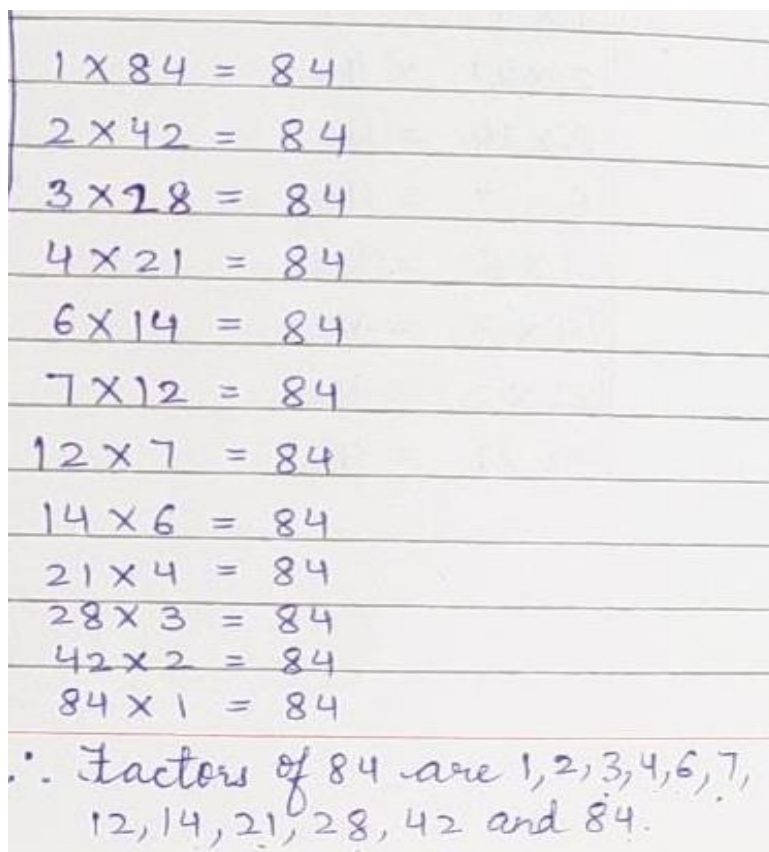 1 × 84 = 84
2 × 42 = 84
3 × 28 = 84
4 × 21 = 84
6 × 14 = 84
7 × 12 = 84
12 × 7 = 84
14 × 6 = 84
21 × 4 = 84
28 × 3 = 84
42 × 2 = 84
84 × 1 = 84
∴ Factors of 84 are 1, 2, 3, 4, 6, 7,
12, 14, 21, 28, 42 and 84.